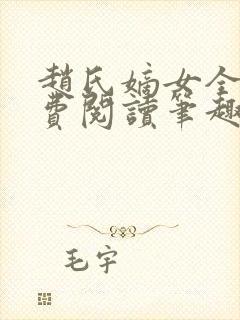 趙氏嫡女全
費閱讀筆趣
毛宇